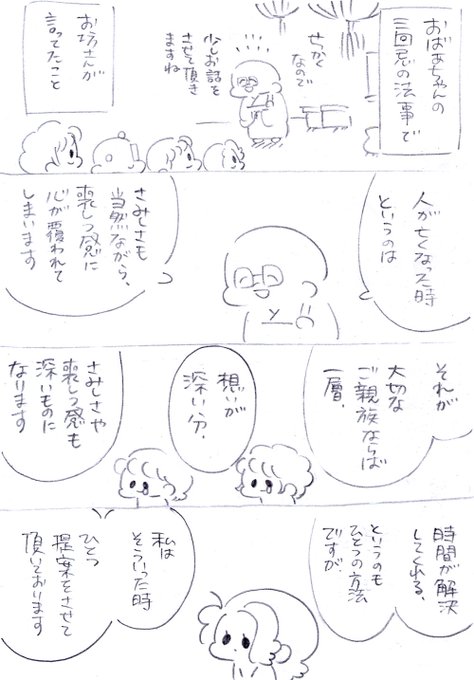 おばあちゃんの
三回忌の法事で
せっかく
なので
少しお話を
させて頂き
ますね
お坊さんが
言ってたこと
人が亡くなった時
というのは
さみしさも
当然ながら、
喪しつ感に
心が覆われて
しまいます
それが
大切な
ご親族ならば
一層、
想いが
深い分、
さみしさや
喪しつ感も
深いものに
なります
時間が解決
してくれる、
というのも
ひとつの方法
ですが、
私は
そういった時
ひとつ
提案をさせて
頂いております